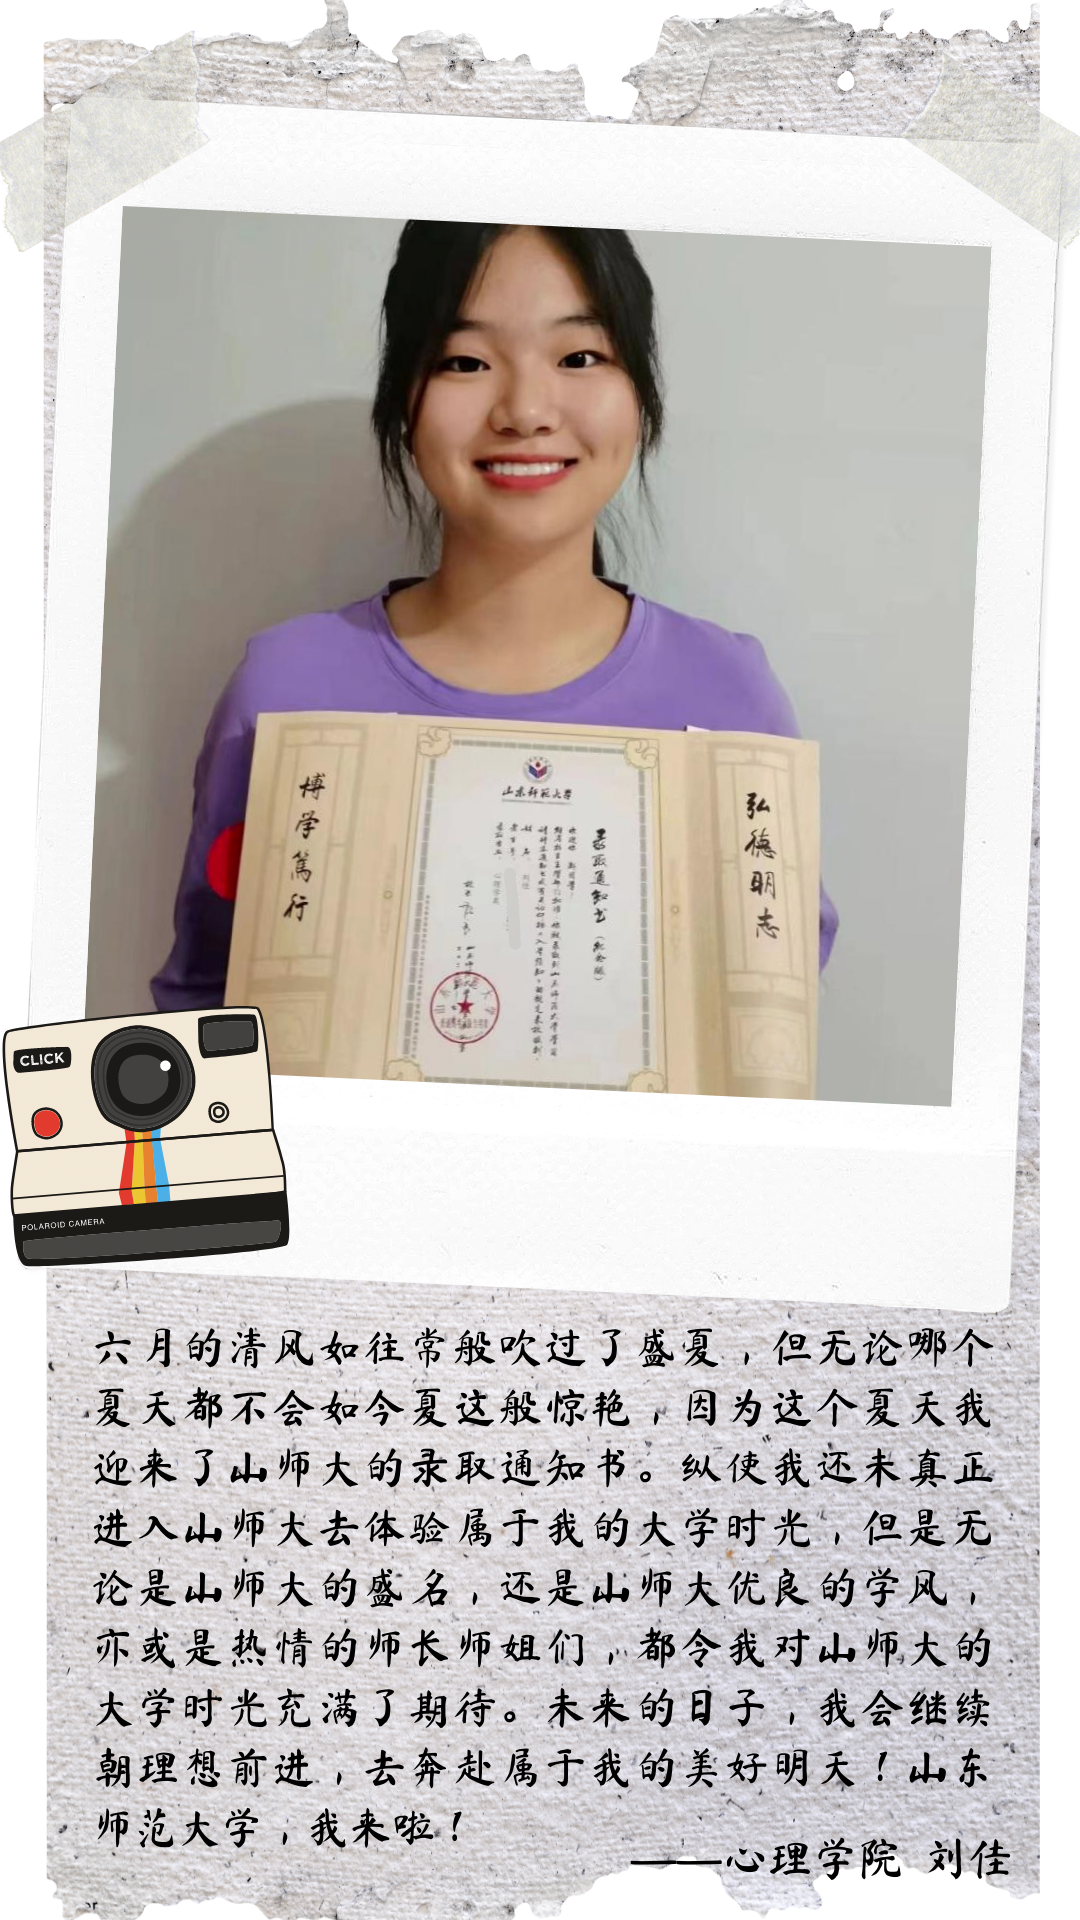 博学笃行
弘德明志
山东师范大学
录取通知书
(纪念版)
CLICK
POLAROID CAMERA
六月的清风如往常般吹过了盛夏，但无论哪个
夏天都不会如今夏这般惊艳，因为这个夏天我
迎来了山师大的录取通知书。纵使我还未真正
进入山师大去体验属于我的大学时光，但是无
论是山师大的盛名，还是山师大优良的学风，
亦或是热情的师长师姐们，都令我对山师大的
大学时光充满了期待。未来的日子，我会继续
朝理想前进，去奔赴属于我的美好明天！山东
师范大学，我来啦！
——心理学院 刘佳